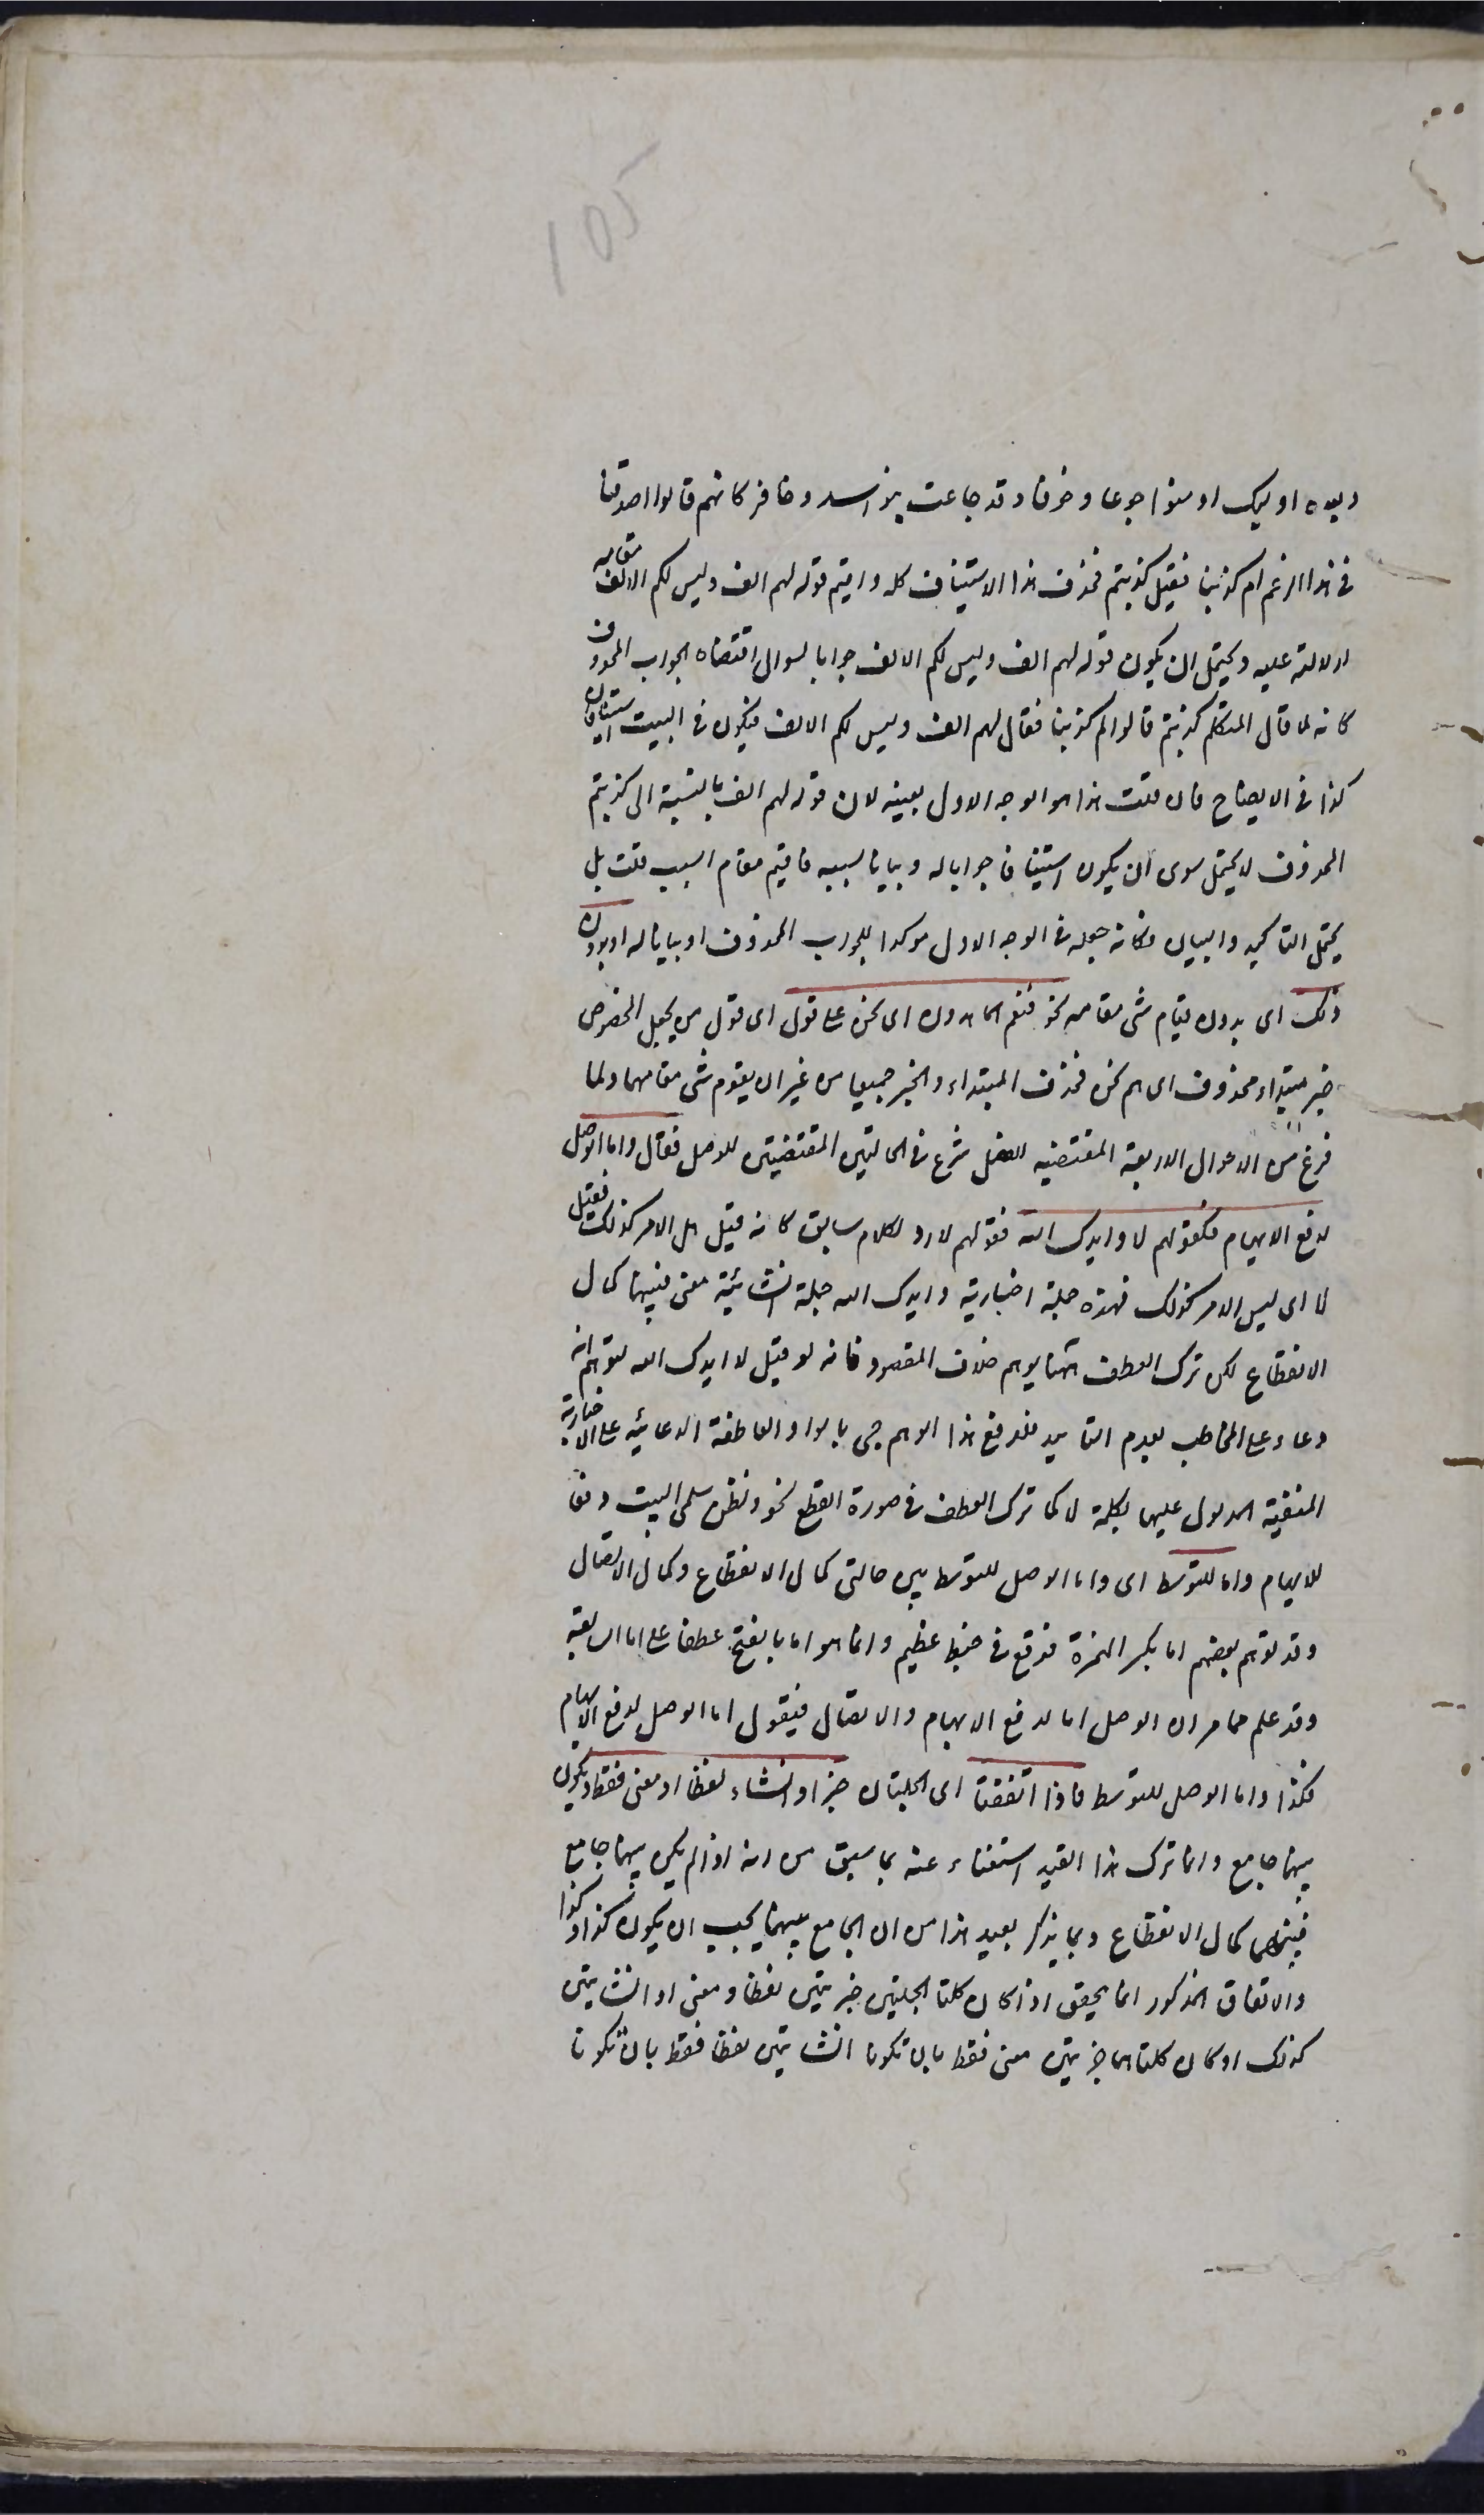 105
وبعده اولیک اومنوا جوعا وخوفا وقد جاعت بنو اسد وخافر کانهم قالوا اصدقنا
فی هذا الزعم ام کذبنا فقیل کذبتم فحذف هذا الاستیناف کله واقیم قوله لهم الف ولیس لکم الالف مقامه
لدلالته علیه ویحتمل ان یکون قوله لهم الف ولیس لکم الالف جوابا لسوال اقتضاه الجواب المحذوف
کانه لما قال المتکلم کذبتم قالوا لم کذبنا فقال لهم الف ولیس لکم الالف فیکون فی البیت استینافان
کذا فی الایضاح فان قلت هذا هو الوجه الاول بعینه لان قوله لهم الف بالنسبة الی کذبتم
المحذوف لا یحتمل سوی ان یکون استینافا جوابا له وبیانا لسببه فاقیم مقام السبب قلت بل
یحتمل التاکید والبیان فکانه جعله فی الوجه الاول موکدا للجواب المحذوف او بیانا له او بدون
ذلک ای بدون قیام شی مقامه نحو فنعم الماهدون ای نحن علی قول ای قول من یجعل المخصوص
خبر مبتداء محذوف ای هم نحن فحذف المبتداء والخبر جمیعا من غیر ان یقوم شی مقامهما ولما
فرغ من الاحوال الاربعة المقتضیه للفصل شرع فی الحالتین المقتضیتین للوصل فقال واما الوصل
لدفع الایهام فکقولهم لا وایدک الله فقولهم لا رد لکلام سابق کانه قیل هل الامر کذلک فقیل
لا ای لیس الامر کذلک فهذه جملة اخباریة وایدک الله جملة انشائیة معنی فبینهما کمال
الانقطاع لکن ترک العطف ههنا یوهم خلاف المقصود فانه لو قیل لا ایدک الله لتوهم انه
دعاء علی المخاطب بعدم التایید فلدفع هذا الوهم جی بالواو العاطفة الدعائیه علی الاخباریة
المنفیة المدلول علیها بکلمة لا کما ترک العطف فی صورة القطع نحو وتظن سلمی البیت دفعا
للایهام واما للتوسط ای واما الوصل للتوسط بین حالتی کمال الانقطاع وکمال الاتصال
وقد توهم بعضهم اما بکسر الهمزة فوقع فی خبط عظیم وانما هو اما بالفتح عطفا علی اما السابقة
وقد علم مما مر ان الوصل اما لدفع الایهام والاتصال فیقول اما الوصل لدفع الایهام
فکذا واما الوصل للتوسط فاذا اتفقتا ای الجملتان خبرا وانشاء لفظا او معنی فقط ویکون
بینهما جامع وانما ترک هذا القید استغناء عنه بما سبق من انه اذا لم یکن بینهما جامع
فبینهما کمال الانقطاع وبما یذکر بعید هذا من ان الجامع بینهما یجب ان یکون کذا وکذا
والاتفاق المذکور انما یحقق اذا کان کلتا الجملتین خبریتین لفظا ومعنی او انشایتین
کذلک او کان کلتاهما خبریتین معنی فقط بان تکونا انشایتین لفظا فقط بان تکونا